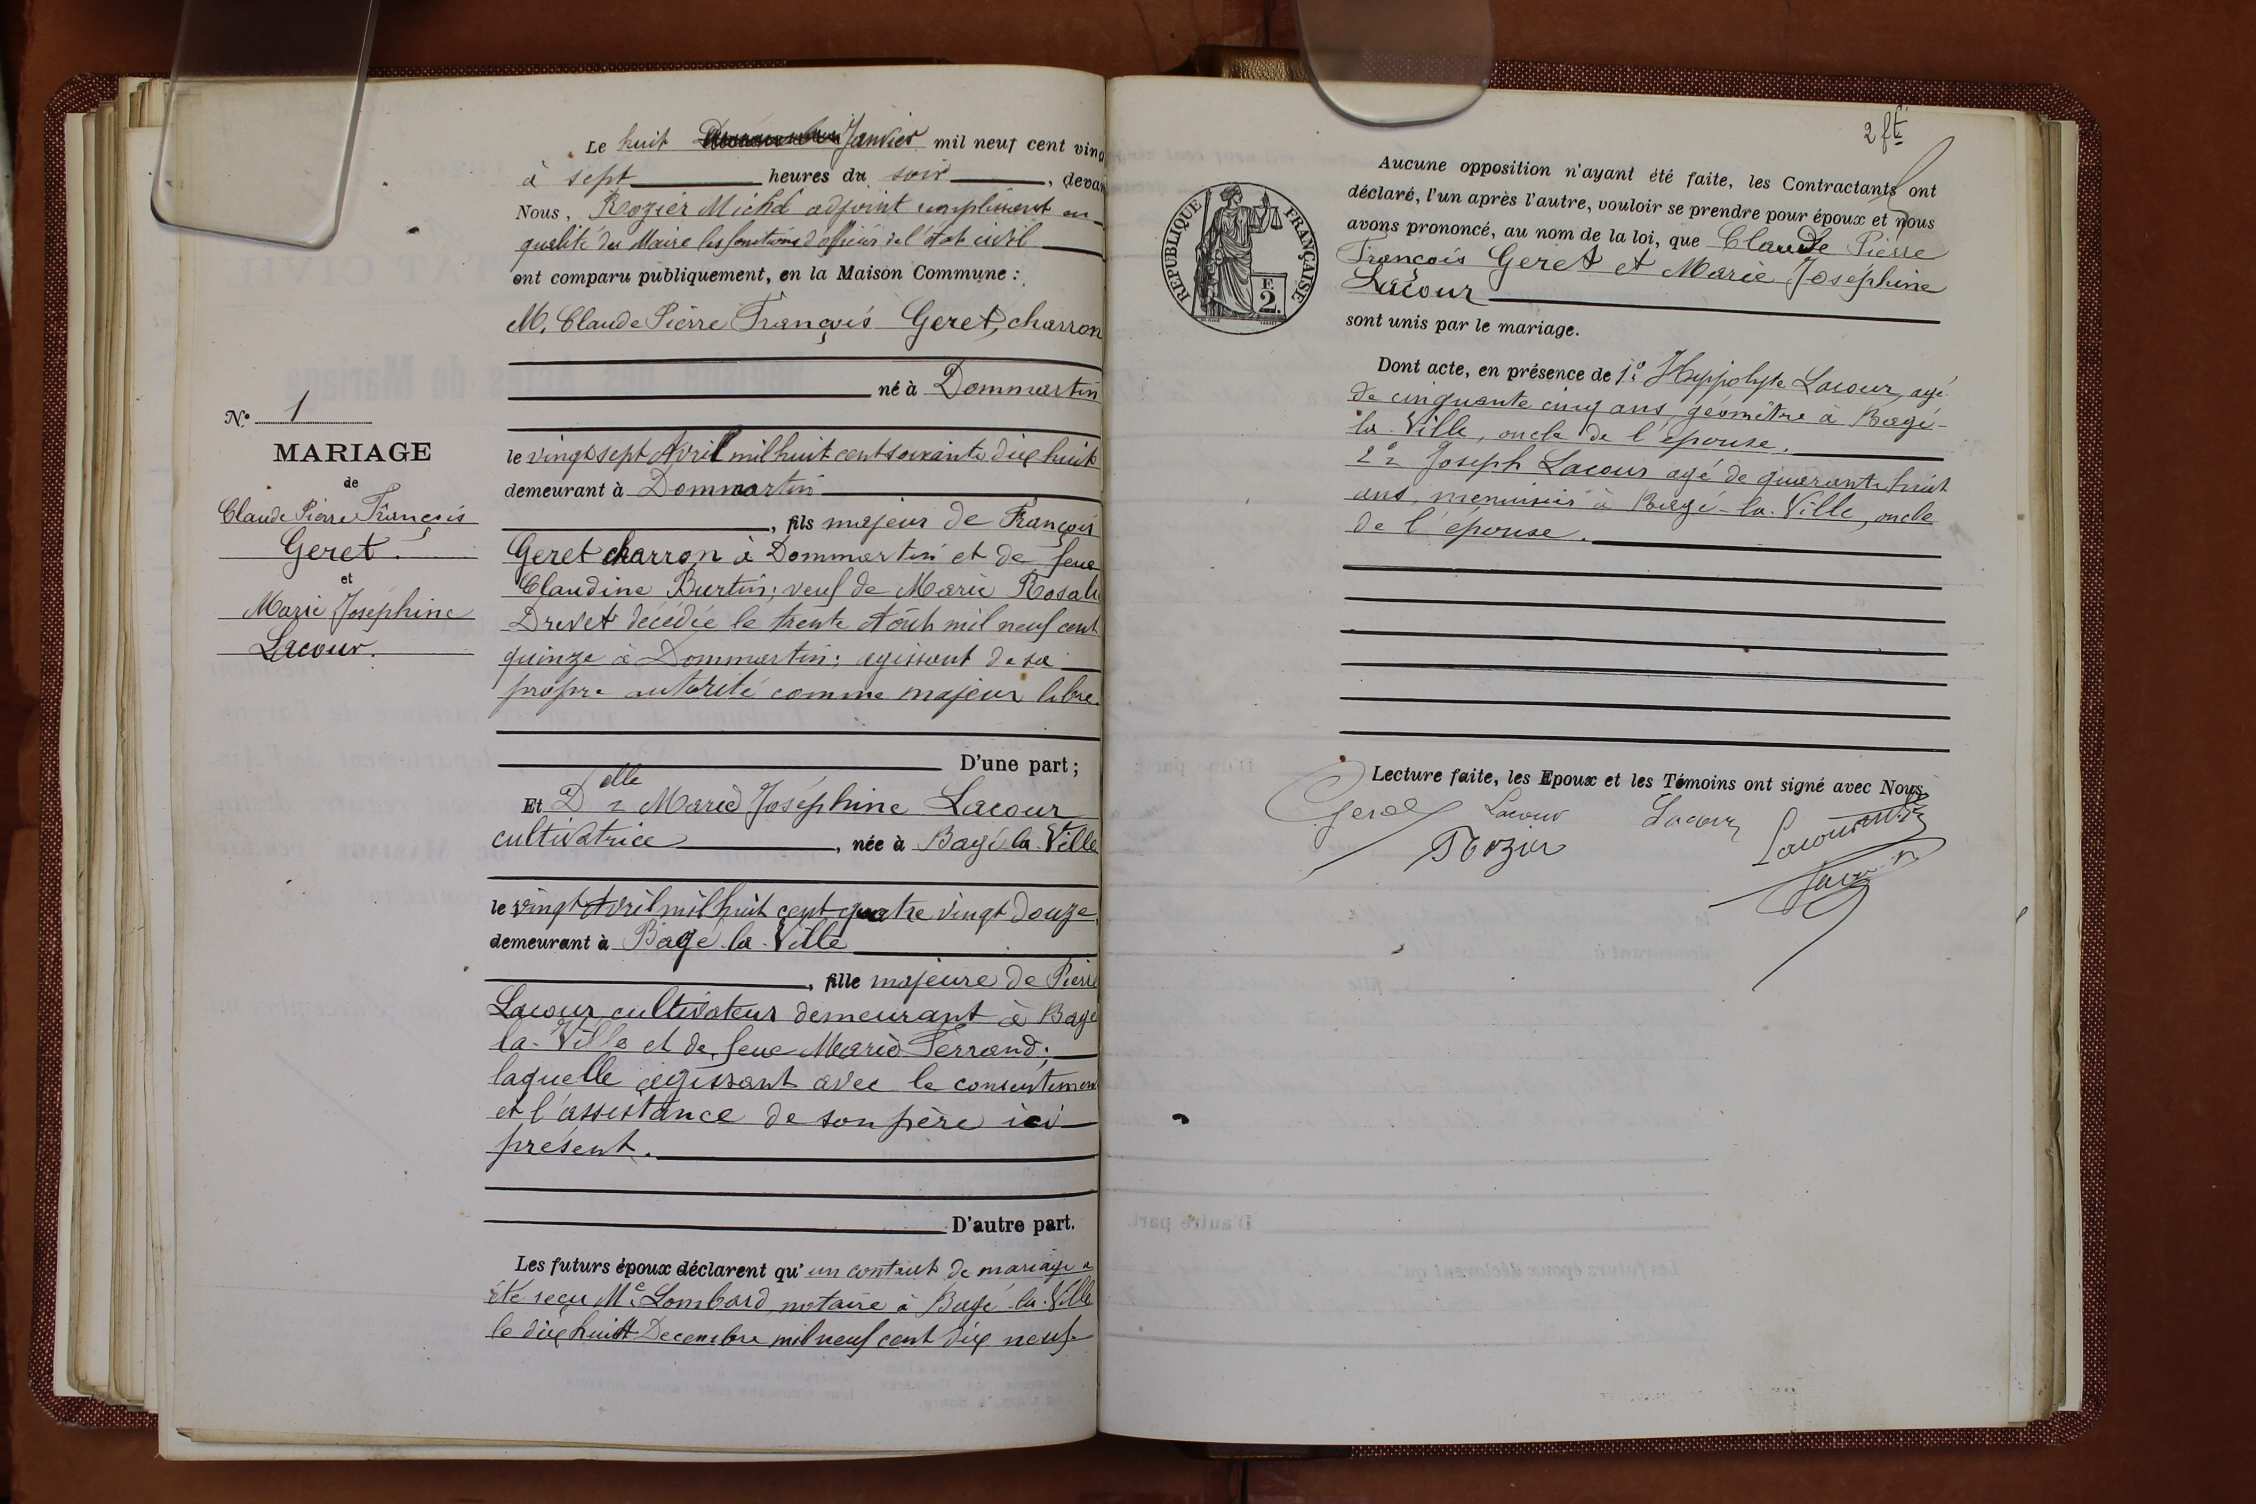 Le huit Janvier mil neuf cent ving
à sept heures du soir, devan
Nous, Rozier Michel adjoint remplissant en
qualité du Maire les fonctions d'officier de l'Etat civil
ont comparu publiquement, en la Maison Commune :
M. Claude Pierre François Geret, charron
né à Dommartin
le vingt sept Avril mil huit cent soixante dix huit
demeurant à Dommartin
, fils majeur de François
Geret charron à Dommartin et de feue
Claudine Burtin; veuf de Marie Rosalie
Drevet décédée le trente Août mil neuf cent
quinze à Dommartin; agissant de sa
propre autorité comme majeur libre.
D'une part ;
N° 1
MARIAGE
de
Claude Pierre François
Geret.
et
Marie Joséphine
Lacour.
Et Delle Marie Joséphine Lacour
cultivatrice, née à Bagé-la-Ville
le vingt Avril mil huit cent quatre vingt douze
demeurant à Bagé-la-Ville
, fille majeure de Pierre
Lacour cultivateur demeurant à Bagé
la-Ville et de feue Marie Ferrand;
laquelle agissant avec le consentement
et l'assistance de son père ici
présent.
D'autre part.
Les futurs époux déclarent qu'un contrat de mariage a
été reçu Me Lombard notaire à Bagé-la-Ville
le dix huit Decembre mil neuf cent dix neuf
2 ft
REPUBLIQUE FRANÇAISE
E
2.
Aucune opposition n'ayant été faite, les Contractants ont
déclaré, l'un après l'autre, vouloir se prendre pour époux et nous
avons prononcé, au nom de la loi, que Claude Pierre
François Geret et Marie Joséphine
Lacour
sont unis par le mariage.
Dont acte, en présence de 1° Hyppolyte Lacour, agé
de cinquante cinq ans, géomètre à Bagé-
la-Ville, oncle de l'épouse.
2° Joseph Lacour agé de quarante huit
ans, menuisier à Bagé-la-Ville, oncle
de l'épouse.
Lecture faite, les Epoux et les Témoins ont signé avec Nous
Geret Lacour Lacour Lacour
Rozier